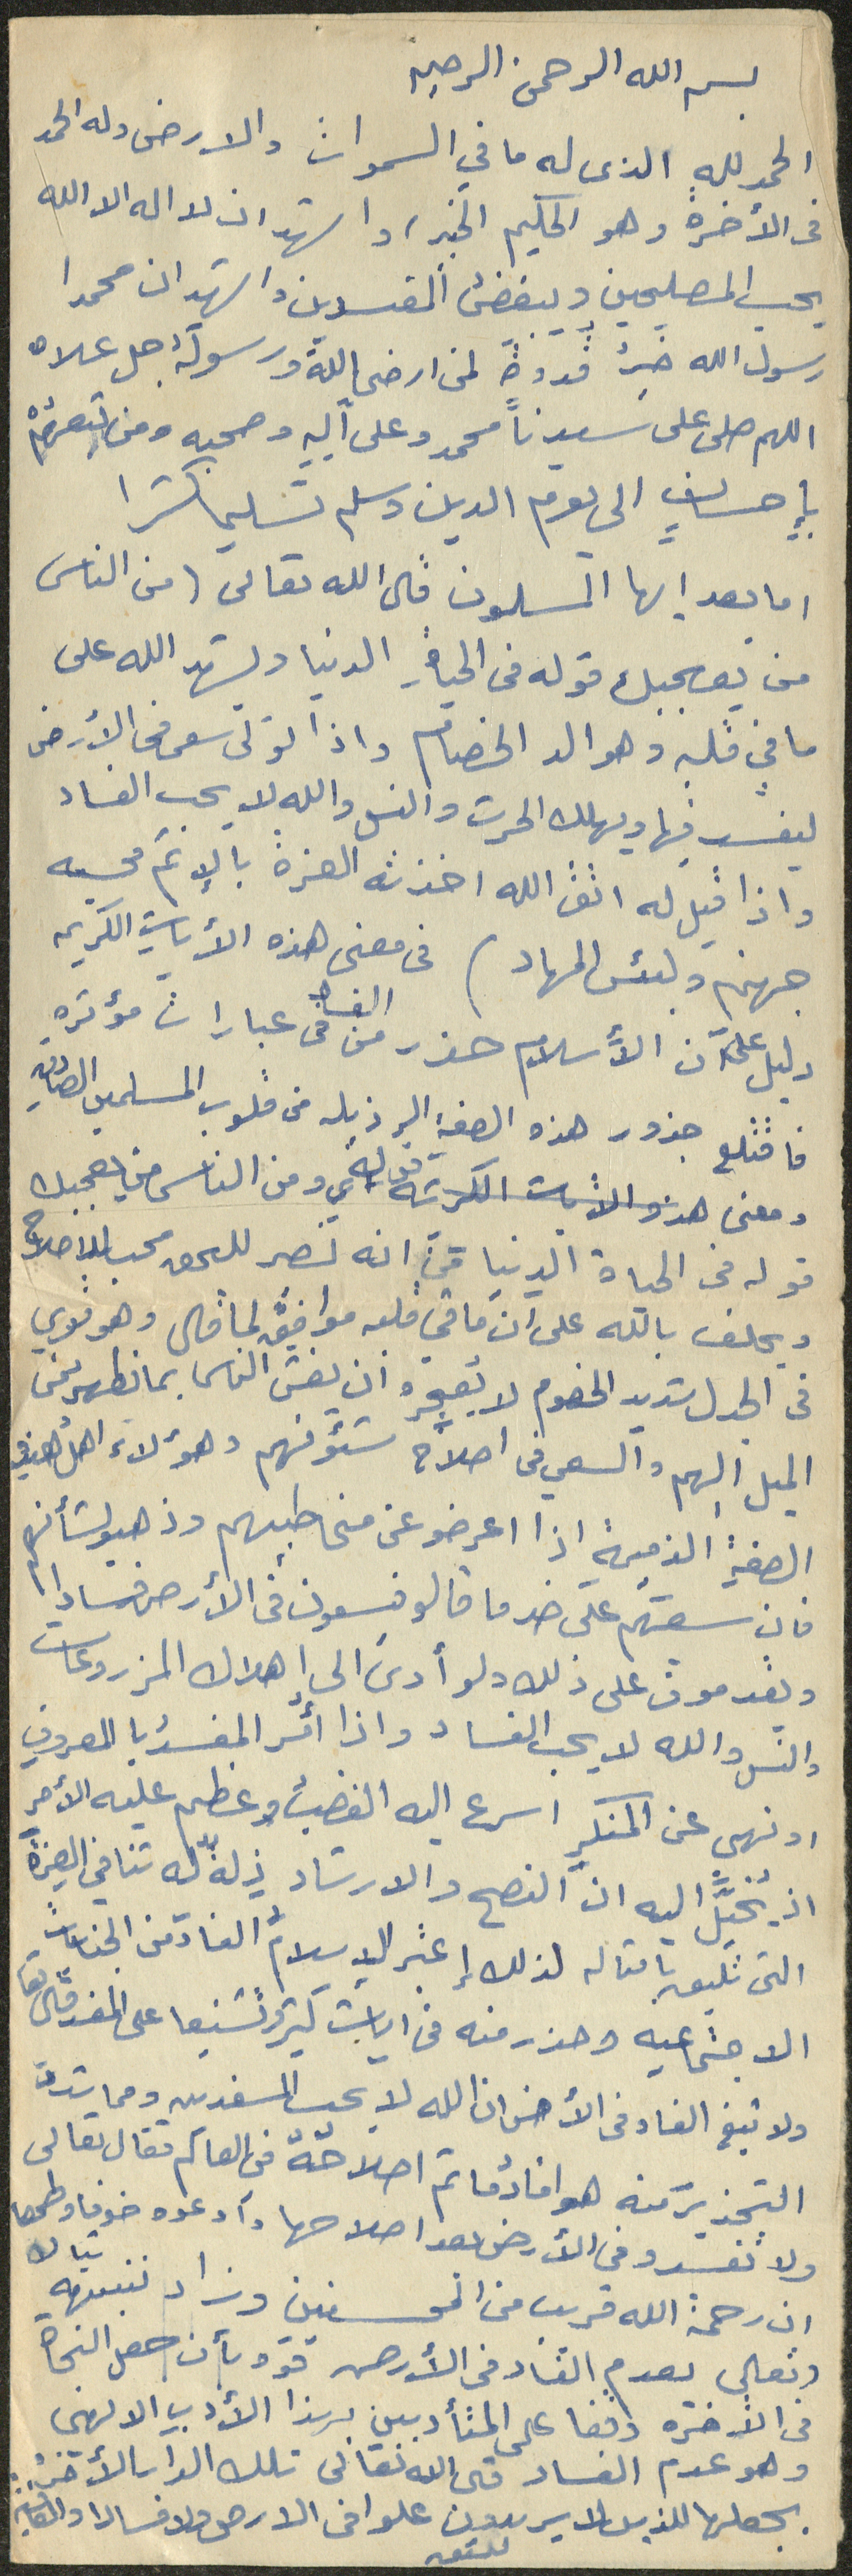 بسم الله الرحمن الرحيم
الحمد لله الذى له ما في السموات والارض وله الحمد
فى الأخرة وهو الحكيم الخبير واشهد ان لا اله الا الله
يحب المصلحين ويبغض المفسدين واشهد ان محمدا
رسول الله خير قدوة لمن ارضى الله ورسوله جل علاه
اللهم صلى على سيدنا محمد وعلى آله وصحبه ومن تبعهم
بإحسان الى يوم الدين وسلم تسليما كثيرا
اما بعد ايها المسلمون قال الله تعالى (من الناس
من يعجبك قوله فى الحياة الدنيا ويشهد الله على
ما في قلبه وهو الد الخصام واذا تولى سعى فى الأرض
ليفسد فيها ويهلك الحرث والنسل والله لا يحب الفساد
واذا قيل له اتق الله اخذته العزة بالإثم فحسبه
جهنم ولبئس المهاد) فى معنى هذه الأيات الكريمه
دليل على أن الأسلام حذر من الفساد فى عبارات مؤثره
فاقتلع جذور هذه الصفة الرذيله من قلوب المسلمين الصادقين
ومعنى هذه الايات الكريمة قوله ومن الناس من يعجبك
قوله فى الحياة الدنيا انه نصر للحق محب للاصلاح
ويحلف بالله على ان ما في قلبه موافق لما قال وهو قوي
فى الجدل شديد الخصوم لا يعجزه ان يغش الناس بما يظهر من
الميل اليهم والسعي فى اصلاح شئونهم وهؤلاء اهل هذه
الصفة الذميمة اذا اعرضو عن مخاطبهم وذهبو لشأنهم
فان سعيهم على ضد ما قالو فيسعون فى الأرض فسادا
ويقدمون على ذلك ولو أدى الى إهلاك المزروعات
والنسل والله لا يحب الفساد واذا أمر المفسد بالمعروف
او نهى عن المنكر اسرع اليه الغضب وعظم عليه الأمر
اذ يخيل اليه ان النصح والارشاد ذلة له تنافي العزة
التى تليق بامثاله لذلك إعتبر الاسلام الفساد من الجنايات
الاجتماعيه وحذر منه فى ايات كثيرة تشنيعا على المفسد قال تعا
ولا تبغ الفساد فى الأرض ان الله لا يحب المفسدين ومما يشدد
التحذير منه هو افساد ما تم اصلاحه فى العالم فقال تعالى
ولا تفسدو فى الأرض بعد اصلاحها وادعوه خوفا وطمعا
ان رحمة الله قريب من المحسنين وزاد تنبيهه تبارك
وتعالى بعدم الفساد فى الأرض قوة بأن جعل النجاة
فى الأخرة وقفا على المتأدبين بهذا الأدب الالهى
وهو عدم الفساد قال الله تعالى تلك الدار الأخرة
نجعلها للذين لا يريدون علوا فى الارض ولا فسادا والعاقبة
للمتقين